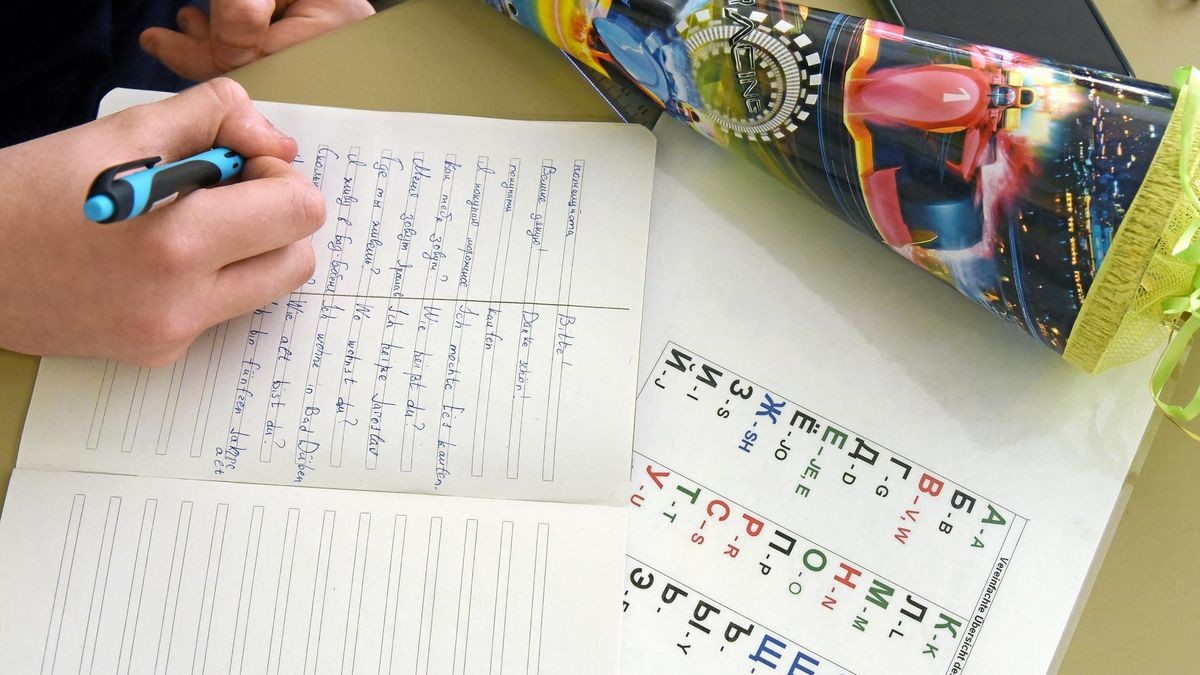 RACING
1
пожалуйста Bitte!
дякую! Danke schön!
покупати kaufen
Я покупаю морожиное Ich möchte Eis kaufen.
Как тебя зовут? Wie heißt du?
Меня зовут Ярослав Ich heiße Jaroslav
Где ты живешь? Wo wohnst du?
Я живу в Бад- Ich wohne in Bad Düben
? Wie alt bist du?
bin fünfzen Jahre
alt
Vereinfachte Übersicht de
А - A
Б - B
В - V, W
Г - G
Д - D
Е - JE, E
Ё - JO
Ж - SH
З - S
И - I
Й - J
К - K
Л - L
М - M
Н - N
О - O
П - P
Р - R
С - S
Т - T
У - U
Щ
Ъ -
Ы - Y
Ь -
Э -